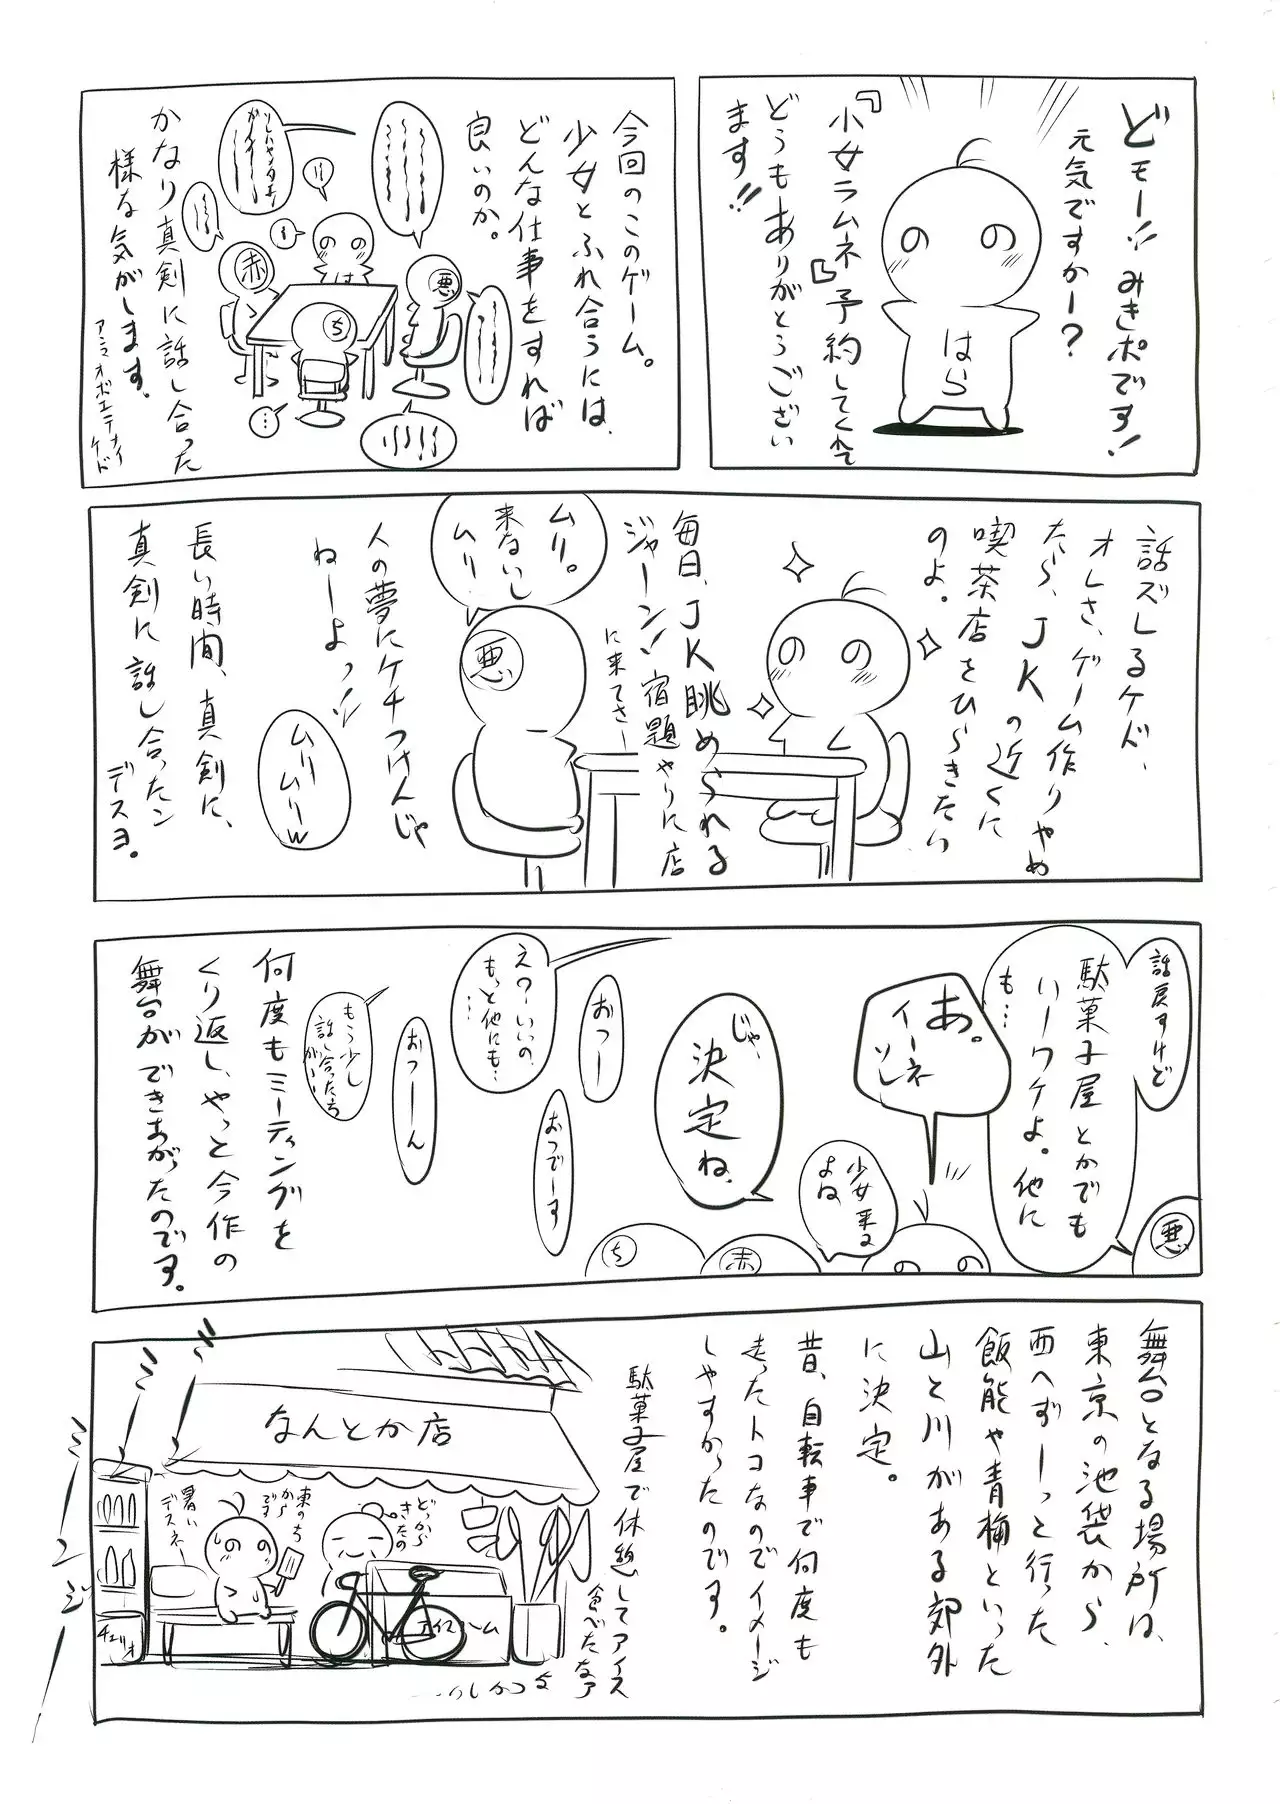 どモー!!みきポです!
元気ですかー?
『小女ラムネ』予約してくれて
どうもありがとうござい
ます!!
はら
今回のこのゲーム。
少女とふれ合うには、
どんな仕事をすれば
良いのか。
は
悪
赤
ち
…
かなり真剣に話し合った
様な気がします。
アンマオボエテナイ
ケド
話ズレるケド、
オレさ、ゲーム作りやめ
たら、JKの近くに
喫茶店をひらきたい
のよ。
毎日、JK眺められる
ジャーン!宿題やりに店
に来てさー
ムリ。
来ないし
ムリー
悪
人の夢にケチつけんじゃ
ねーよッ!!
ムリー
ムリーw
長い時間、真剣に、
真剣に話し合ったン
デスヨ。
話戻すけど
駄菓子屋とかでも
いーワケよ。他に
も…
悪
あ。
イーネ
ソレ
少女来る
よね
じゃー
決定ね。
赤
ち
えー、いいの、
もっと他にも…
おつー
おつでーす
もう少し
話し合ったち
がー…
おつーん
何度もミーティングを
くり返し、やっと今作の
舞台ができあがったのです。
舞台となる場所は、
東京の池袋から、
西へずーっと行った
飯能や青梅といった
山と川がある郊外
に決定。
昔、自転車で何度も
走ったトコなのでイメージ
しやすかったのです。
駄菓子屋で休憩してアイス
食べたなア
なんとか店
どっから
きたの
東のち
からです
暑い
デスネー
アイスクリーム
チェリオ
ミーンジー
ミ
ミ